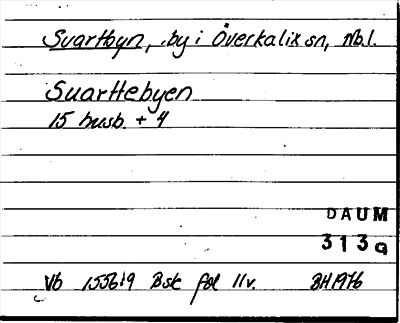 Svartbyn, by i Överkalix sn, Nb.l.
Suarttebyen
15 husb. + 4
DAUM
313G
Vb 1556:9 Bsk fol 11v. BH 1976